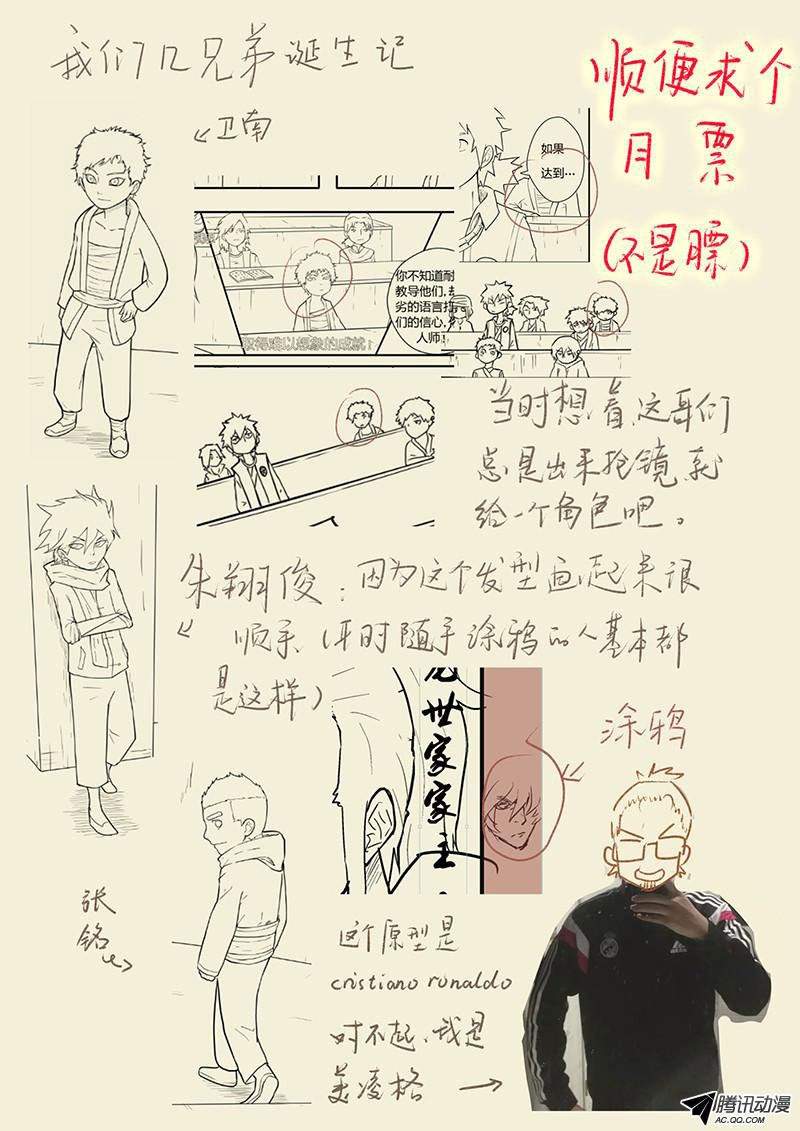 我们几兄弟诞生记
顺便求个
月票
(不是膘)
卫南
如果
达到…
你不知道耐
教导他们,却
劣的语言打
们的信心,
人师!
取得难以想象的成就!
当时想着这哥们
总是出来抢镜就
给一个角色吧。
朱翔俊:因为这个发型画起来很
顺手(平时随手涂鸦的人基本都
是这样)
世家家主。
涂鸦
张铭
这个原型是
cristiano ronaldo
对不起,我是
美凌格
adidas
腾讯动漫
AC.QQ.COM